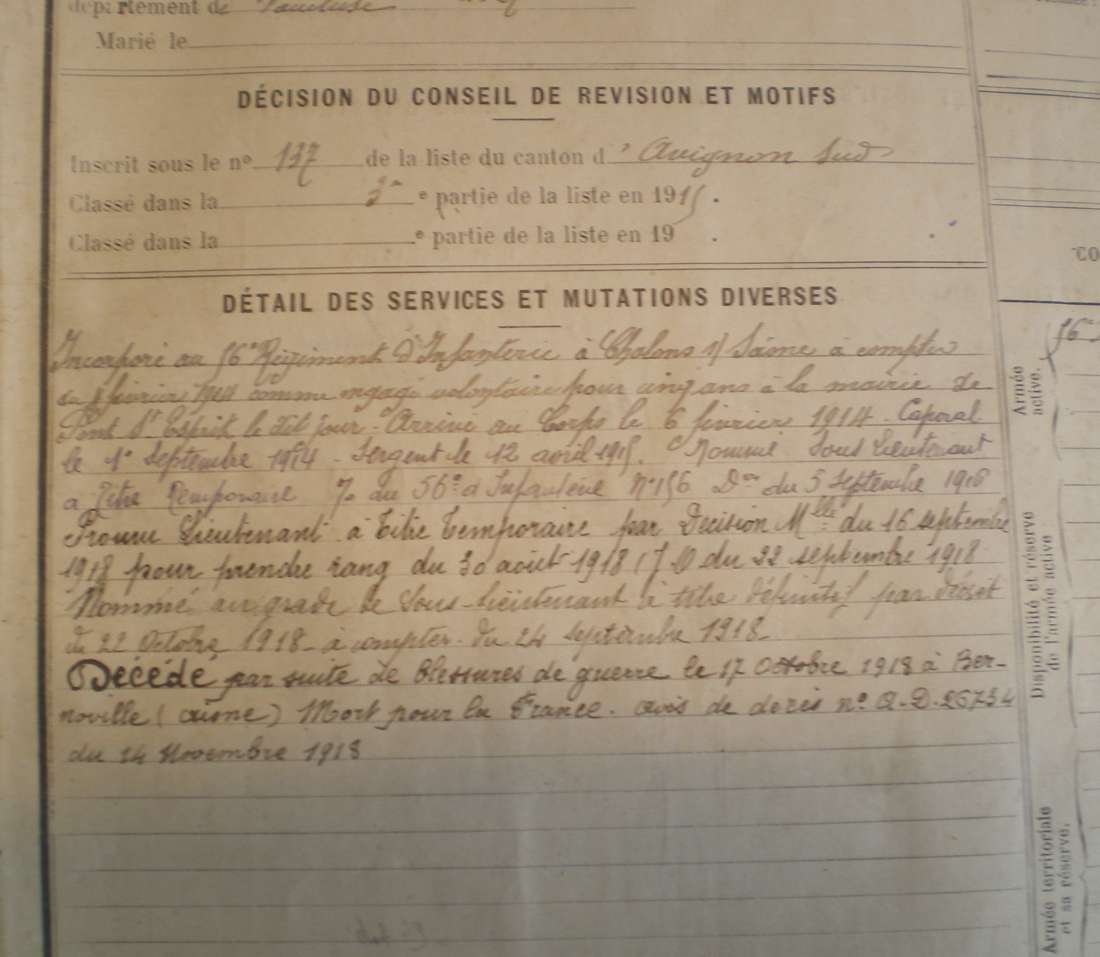 département de Vaucluse
Marié le
DÉCISION DU CONSEIL DE REVISION ET MOTIFS
Inscrit sous le nº 137 de la liste du canton d' Avignon Sud
Classé dans la 3e partie de la liste en 1915.
Classé dans la e partie de la liste en 19 .
DÉTAIL DES SERVICES ET MUTATIONS DIVERSES
Incorporé au 56e Régiment d'Infanterie à Chalons s/ Saône à compter
du février 1914 comme engagé volontaire pour cinq ans à la mairie de
Pont St Esprit le dit jour. Arrivé au Corps le 6 février 1914. Caporal
le 1er Septembre 1914 - Sergent le 12 avril 1915. Nommé Sous Lieutenant
a Titre Temporaire au 56e d'Infanterie Nº 156 Don du 5 Septembre 1916
Promu Lieutenant à Titre Temporaire par Décision Mlle du 16 septembre
1918 pour prendre rang du 30 août 1918 (J.O du 22 septembre 1918
Nommé au grade de Sous-Lieutenant à titre définitif par décret
du 22 Octobre 1918 à compter du 24 septembre 1918
Décédé par suite de blessures de guerre le 17 Octobre 1918 à Ber-
noville (aisne) Mort pour la France. avis de decès nº Q.D.26734
du 14 Novembre 1918
56e
CO
Armée
active.
Disponibilité et réserve
de l'armée active
Armée territoriale
et sa réserve.